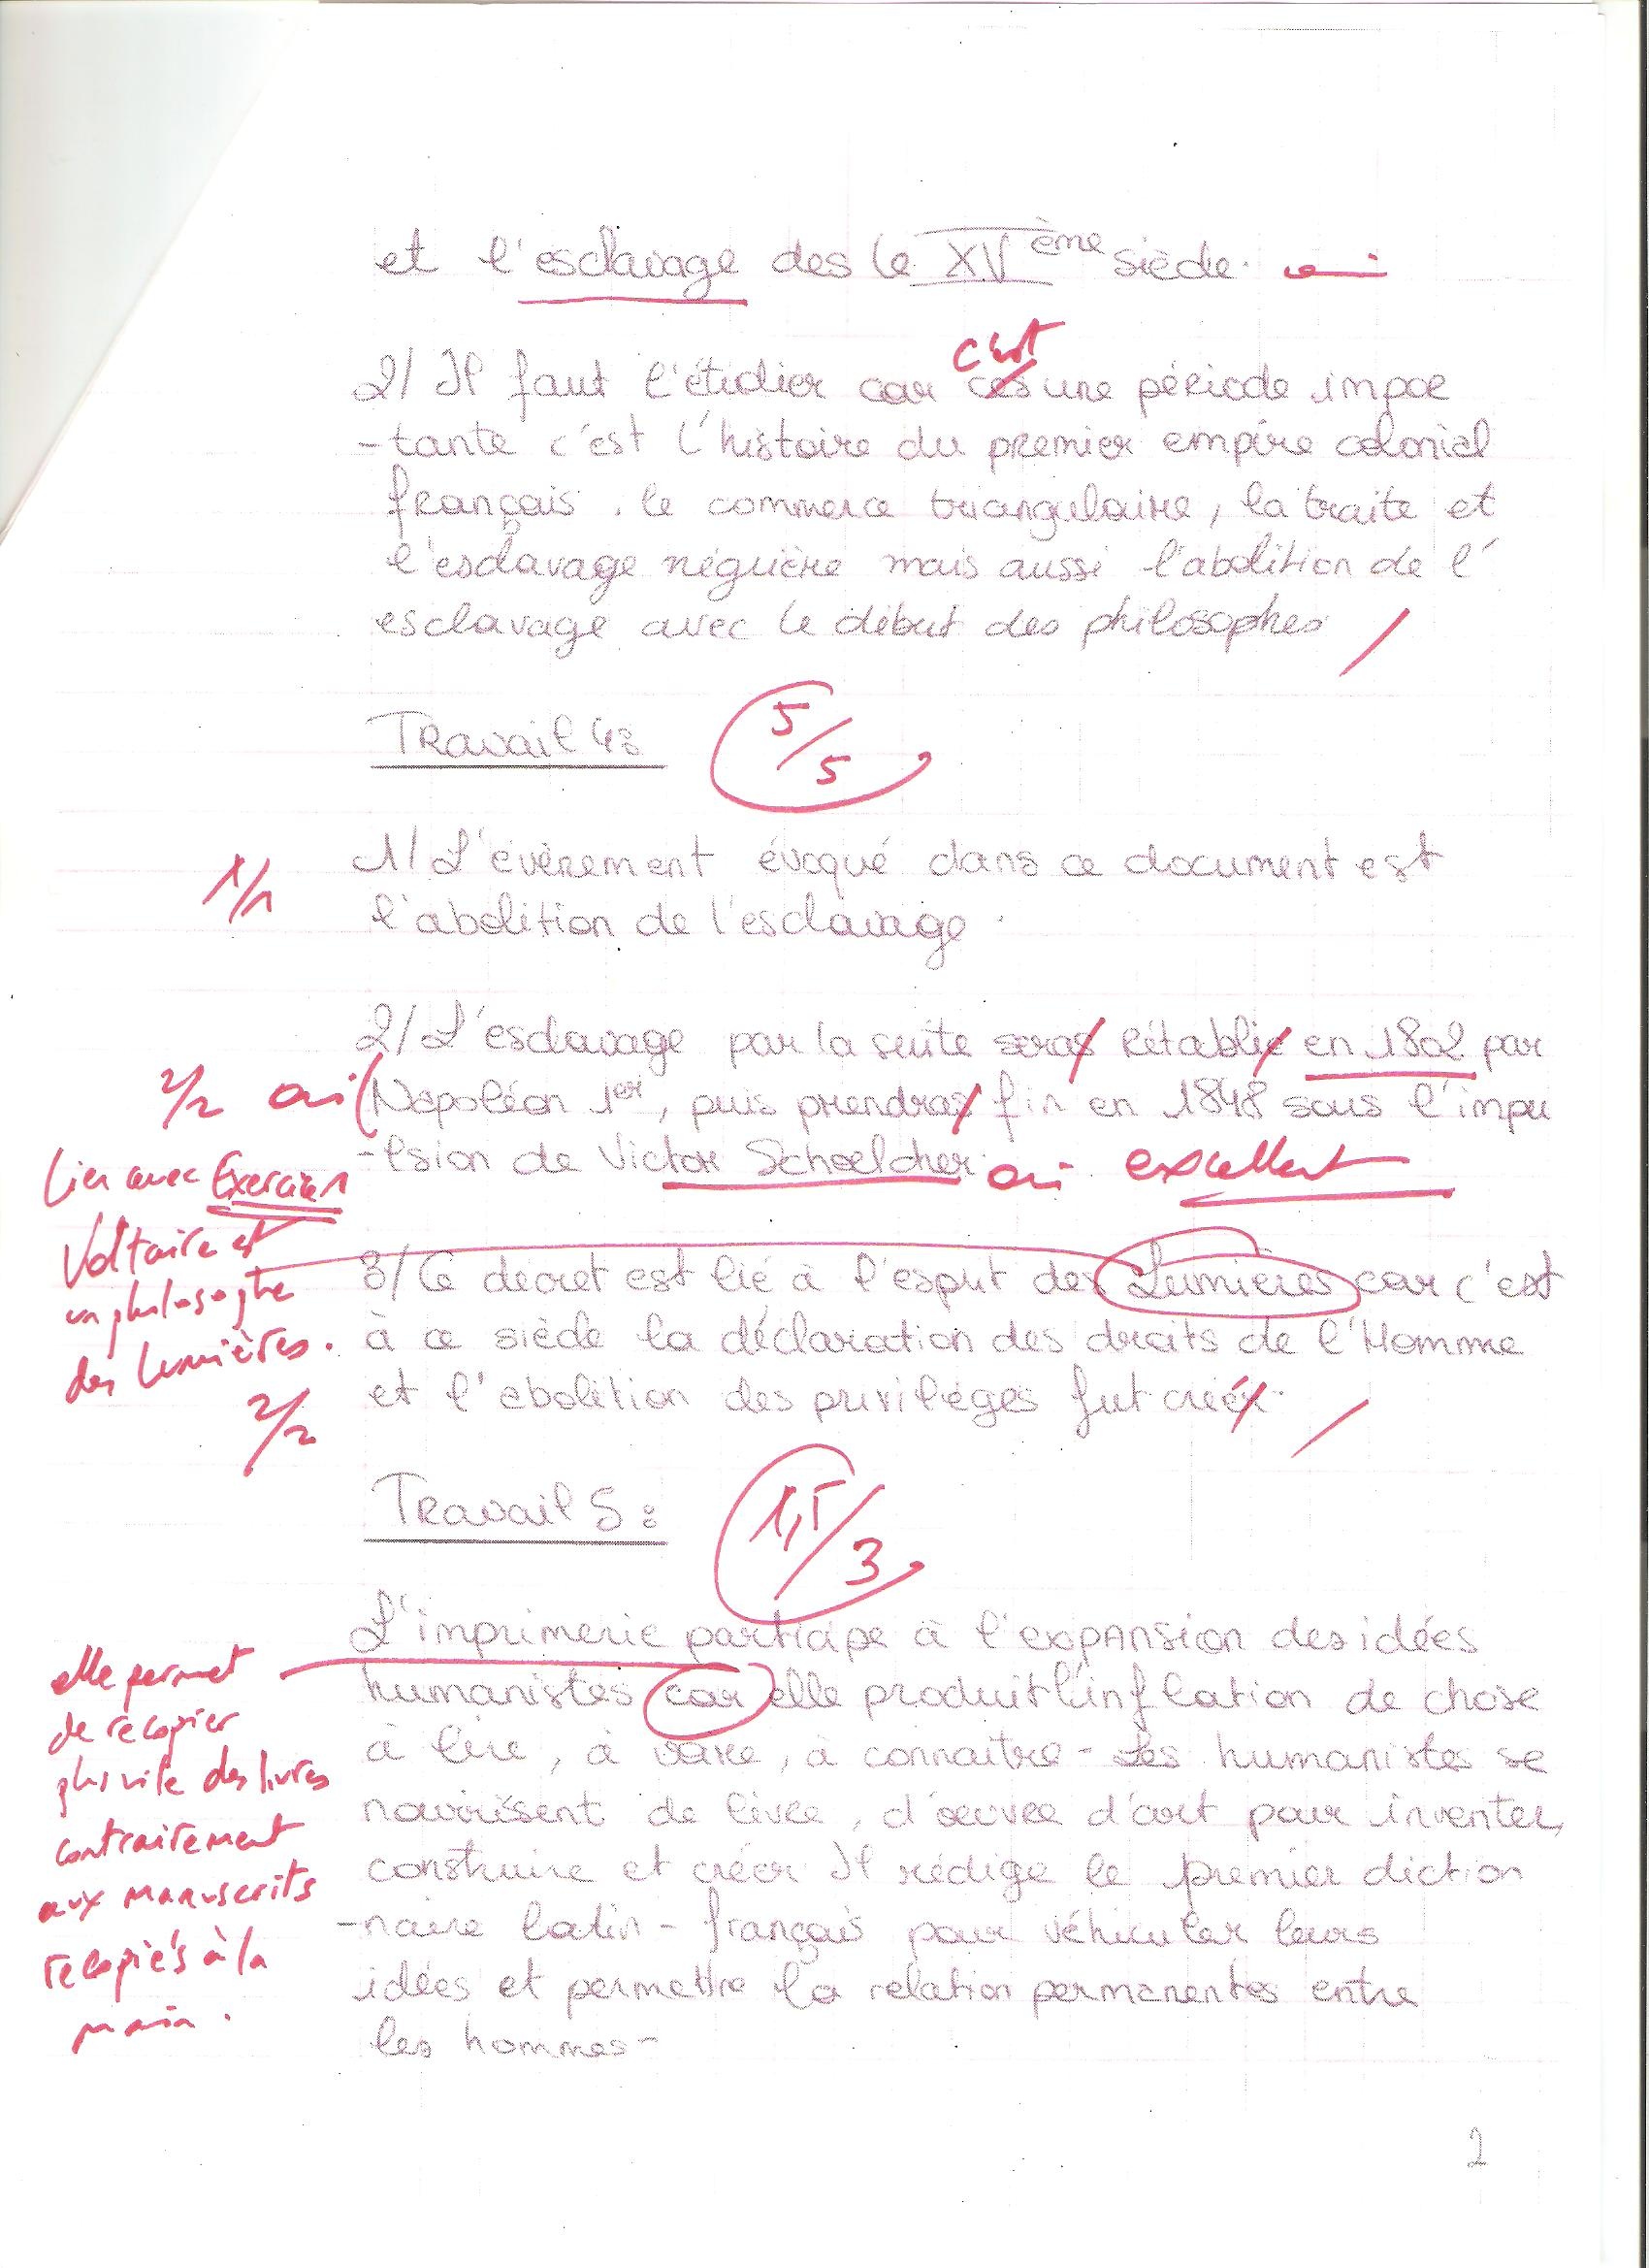 et l'esclavage des le XVème siècle. oui
c'est
2/ Il faut l'étudier car ces une période impor
-tante c'est l'histoire du premier empire colonial
français, le commerce triangulaire, la traite et
l'esclavage négrière mais aussi l'abolition de l'
esclavage avec le début des philosophes
Travail 4:
5/5
1/1
1/ L'évènement évoqué dans ce document est
l'abolition de l'esclavage.
2/ L'esclavage par la suite seras rétablie en 1802 par
2/2 oui
Napoléon 1er, puis prendras fin en 1848 sous l'impu
-lsion de Victor Schoelcher. oui excellent
Lien avec Exercice 1
Voltaire est
un philosophe
des Lumières.
2/2
3/ Ce décret est lié à l'esprit des Lumières car c'est
à ce siècle la déclaration des droits de l'Homme
et l'abolition des privilèges fut créer.
Travail 5:
1,5/3
L'imprimerie participe à l'expansion des idées
humanistes car elle produit l'inflation de chose
à lire, à voire, à connaitre - Les humanistes se
nourrisent de livre, d'oeuvre d'art pour inventer,
construire et créer Il rédige le premier diction
-naire latin - français pour véhiculer leurs
idées et permettre la relation permanentes entre
les hommes -
elle permet
de recopier
plus vite des livres
contrairement
aux manuscrits
recopiés à la
main.
2